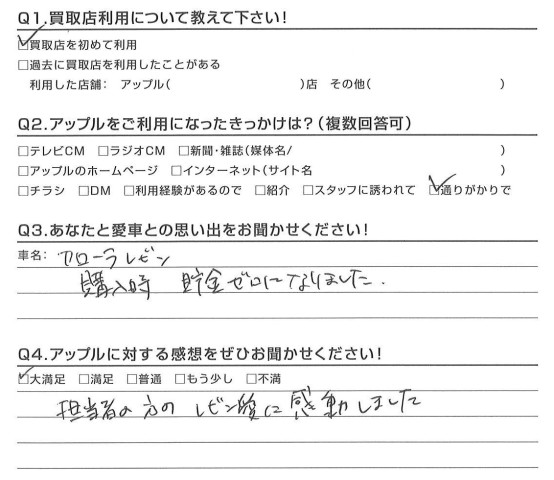 Q1.買取店利用について教えて下さい!
☑買取店を初めて利用
□過去に買取店を利用したことがある
利用した店舗: アップル( )店 その他( )
Q2.アップルをご利用になったきっかけは?(複数回答可)
□テレビCM □ラジオCM □新聞・雑誌(媒体名/ )
□アップルのホームページ □インターネット(サイト名 )
□チラシ □DM □利用経験があるので □紹介 □スタッフに誘われて ☑通りがかりで
Q3.あなたと愛車との思い出をお聞かせください!
車名: カローラレビン
購入時 貯金ゼロになりました.
Q4.アップルに対する感想をぜひお聞かせください!
☑大満足 □満足 □普通 □もう少し □不満
担当者の方の レビン愛に感動しました